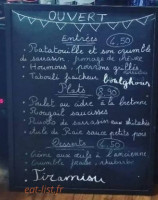 OUVERT
Entrées 6,50
- Ratatouille et son crumble
de sarrasin, fromage de chèvre
- Houmous, poivrons grillés
- Taboulé fraîcheur boulghour
Plats 8,90
- Poulet au cidre à la bretonne
- Rougail saucisses
- Risotto de sarrasin aux shiitakés
- Rôti de Porc sauce petits pois
Desserts 6,50
- Crème aux œufs à l'ancienne
- Crumble fraise, rhubarbe
- Tiramisu
ept-list.fr